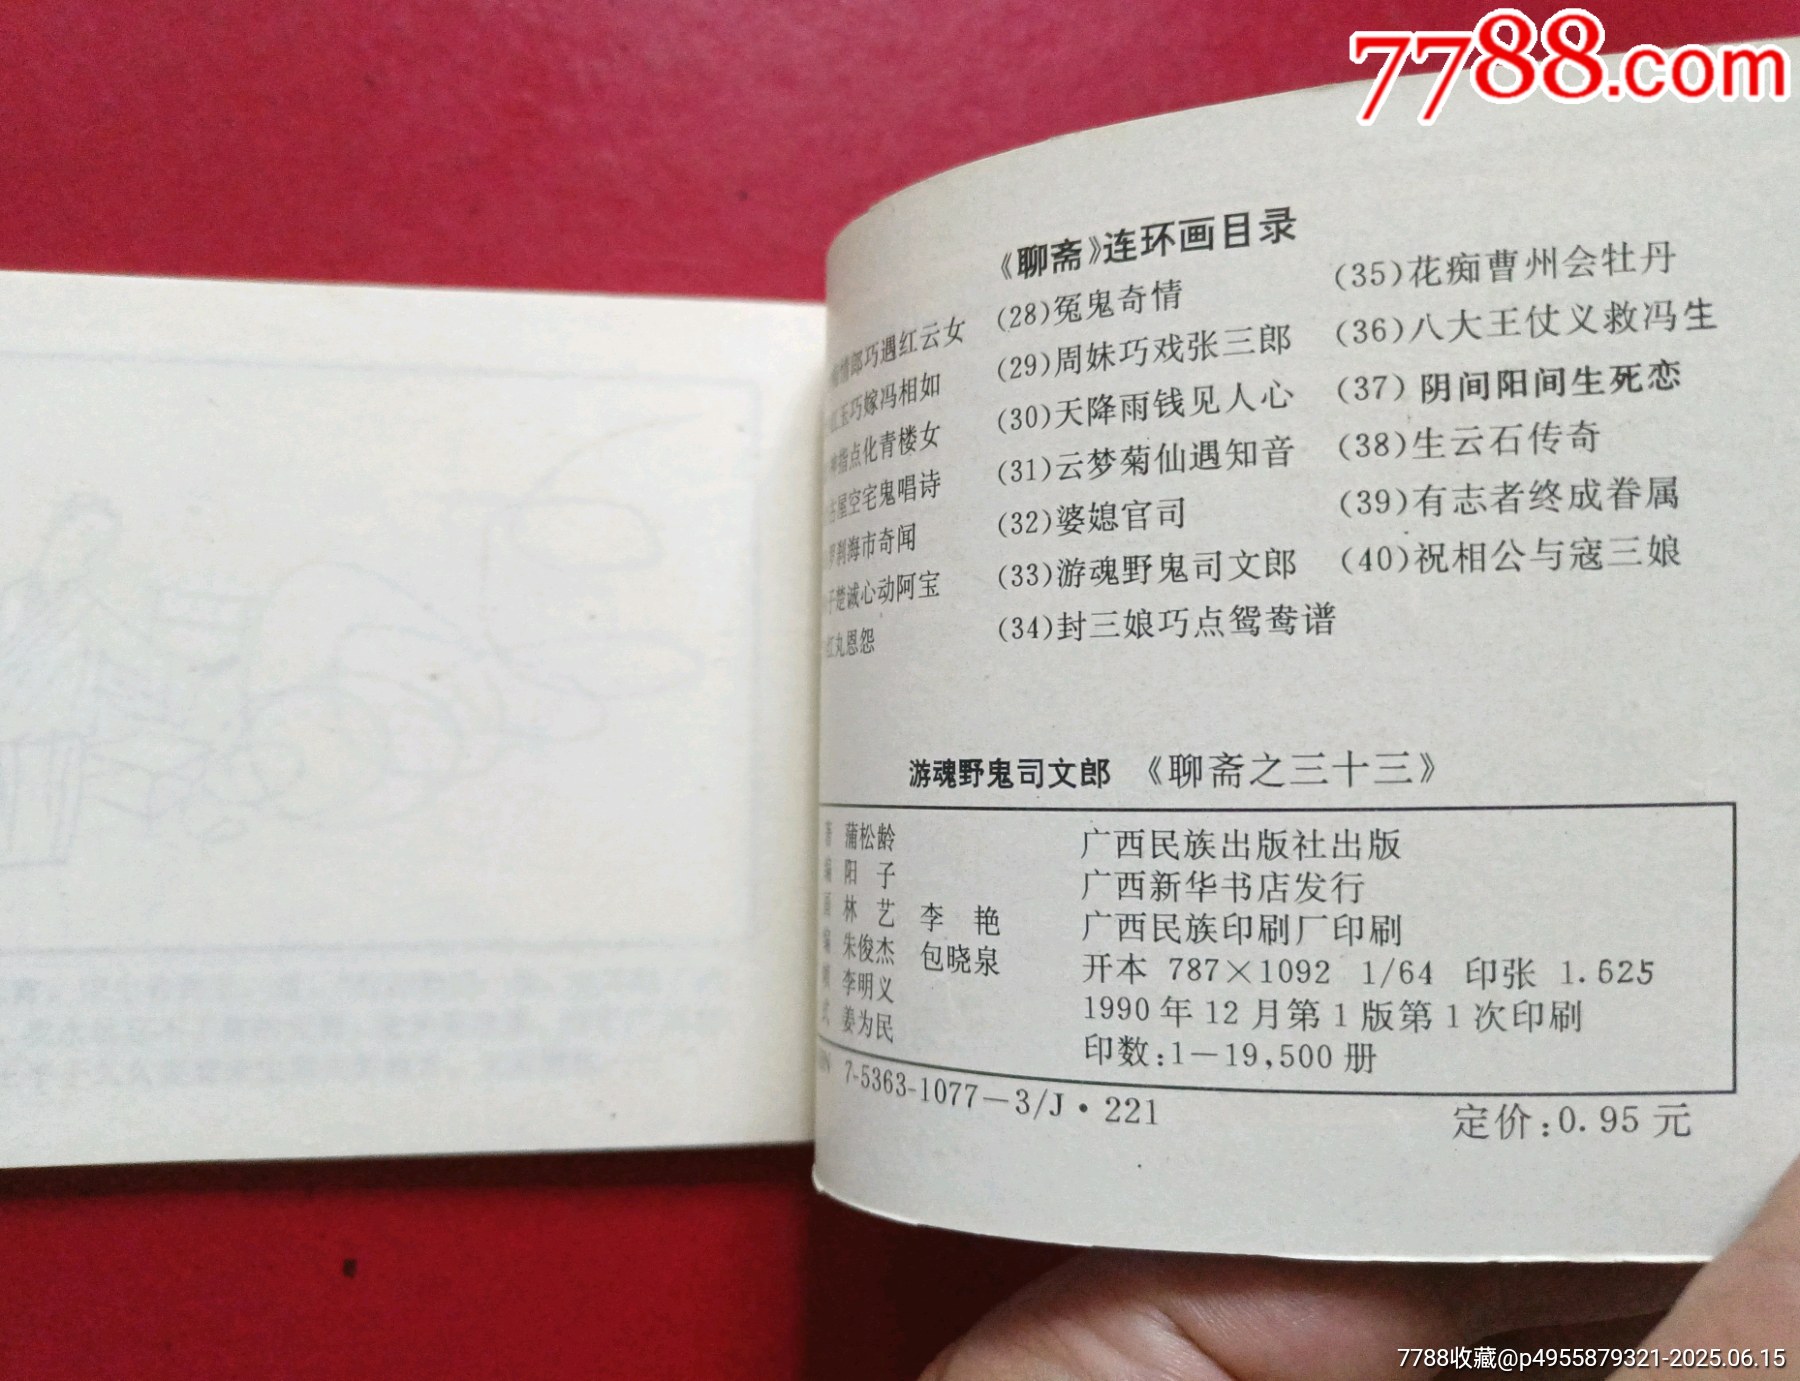 7788.com
《聊斋》连环画目录
情郎巧遇红云女
红玉巧嫁冯相如
指点化青楼女
古屋空宅鬼唱诗
罗刹海市奇闻
子楚诚心动阿宝
红丸恩怨
(28)冤鬼奇情
(29)周妹巧戏张三郎
(30)天降雨钱见人心
(31)云梦菊仙遇知音
(32)婆媳官司
(33)游魂野鬼司文郎
(34)封三娘巧点鸳鸯谱
(35)花痴曹州会牡丹
(36)八大王仗义救冯生
(37)阴间阳间生死恋
(38)生云石传奇
(39)有志者终成眷属
(40)祝相公与寇三娘
游魂野鬼司文郎 《聊斋之三十三》
著 蒲松龄
编 阳 子
画 林 艺 李 艳
编 朱俊杰 包晓泉
李明义
式 姜为民
广西民族出版社出版
广西新华书店发行
广西民族印刷厂印刷
开本 787×1092 1/64 印张 1.625
1990年12月第1版第1次印刷
印数:1—19,500册
7-5363-1077—3/J·221
定价:0.95元
7788收藏@p4955879321-2025.06.15